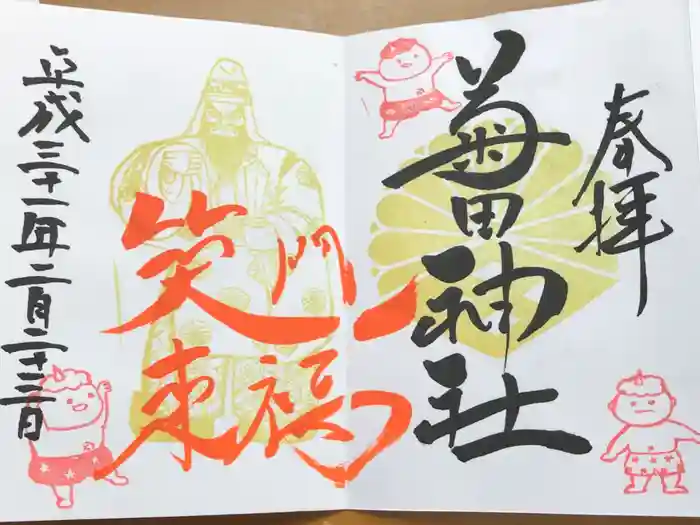 奉拝
菊田神社
笑門
来福
平成三十一年二月二十三日